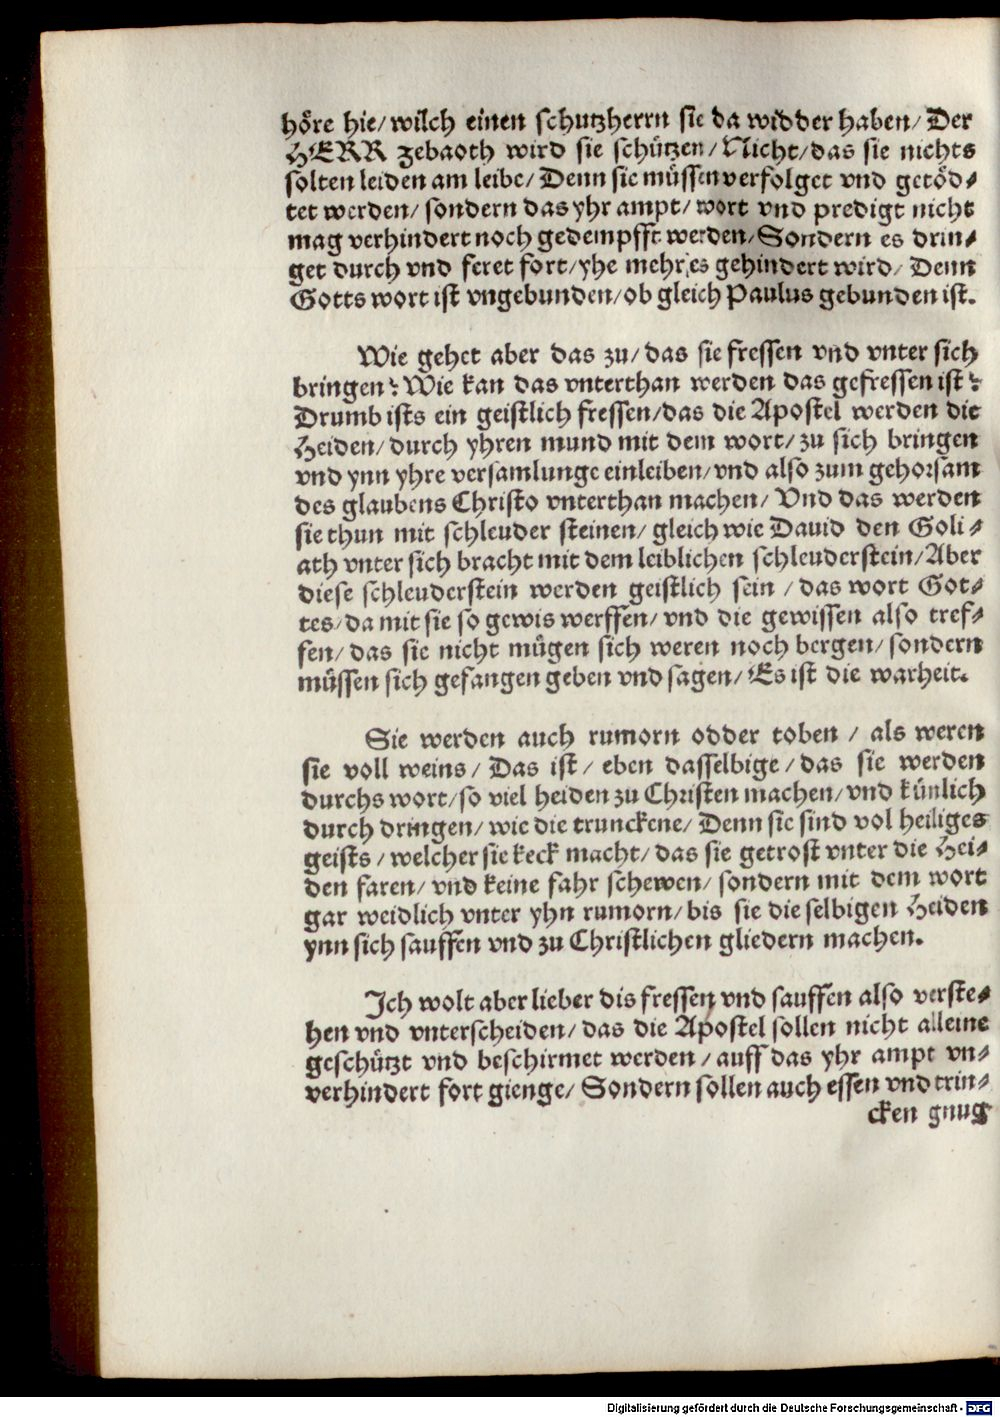 höre hie/ wilch einen schutzherrn sie da widder haben/ Der
HERR zebaoth wird sie schützen/ Nicht/ das sie nichts
solten leiden am leibe/ Denn sie müssen verfolget vnd getöd⸗
tet werden/ sondern das yhr ampt/ wort vnd predigt nicht
mag verhindert noch gedempfft werden/ Sondern es drin⸗
get durch vnd feret fort/ yhe mehr es gehindert wird/ Denn
Gotts wort ist vngebunden/ ob gleich Paulus gebunden ist.
Wie gehet aber das zu/ das sie fressen vnd vnter sich
bringen? Wie kan das vnterthan werden das gefressen ist?
Drumb ists ein geistlich fressen/ das die Apostel werden die
Heiden/ durch yhren mund mit dem wort/ zu sich bringen
vnd ynn yhre versamlunge einleiben/ vnd also zum gehorsam
des glaubens Christo vnterthan machen/ Vnd das werden
sie thun mit schleuder steinen/ gleich wie Dauid den Goli⸗
ath vnter sich bracht mit dem leiblichen schleuderstein/ Aber
diese schleuderstein werden geistlich sein / das wort Got⸗
tes/ da mit sie so gewis werffen/ vnd die gewissen also tref⸗
fen/ das sie nicht mügen sich weren noch bergen/ sondern
müssen sich gefangen geben vnd sagen/ Es ist die warheit.
Sie werden auch rumorn odder toben / als weren
sie voll weins/ Das ist/ eben dasselbige/ das sie werden
durchs wort/ so viel heiden zu Christen machen/ vnd künlich
durch dringen/ wie die trunckene/ Denn sie sind vol heiliges
geists / welcher sie keck macht/ das sie getrost vnter die Hei⸗
den faren/ vnd keine fahr schewen/ sondern mit dem wort
gar weidlich vnter yhn rumorn/ bis sie die selbigen Heiden
ynn sich sauffen vnd zu Christlichen gliedern machen.
Ich wolt aber lieber dis fressen vnd sauffen also verste⸗
hen vnd vnterscheiden/ das die Apostel sollen nicht alleine
geschützt vnd beschirmet werden / auff das yhr ampt vn⸗
verhindert fort gienge/ Sondern sollen auch essen vnd trin⸗
cken gnug
Digitalisierung gefördert durch die Deutsche Forschungsgemeinschaft - DFG